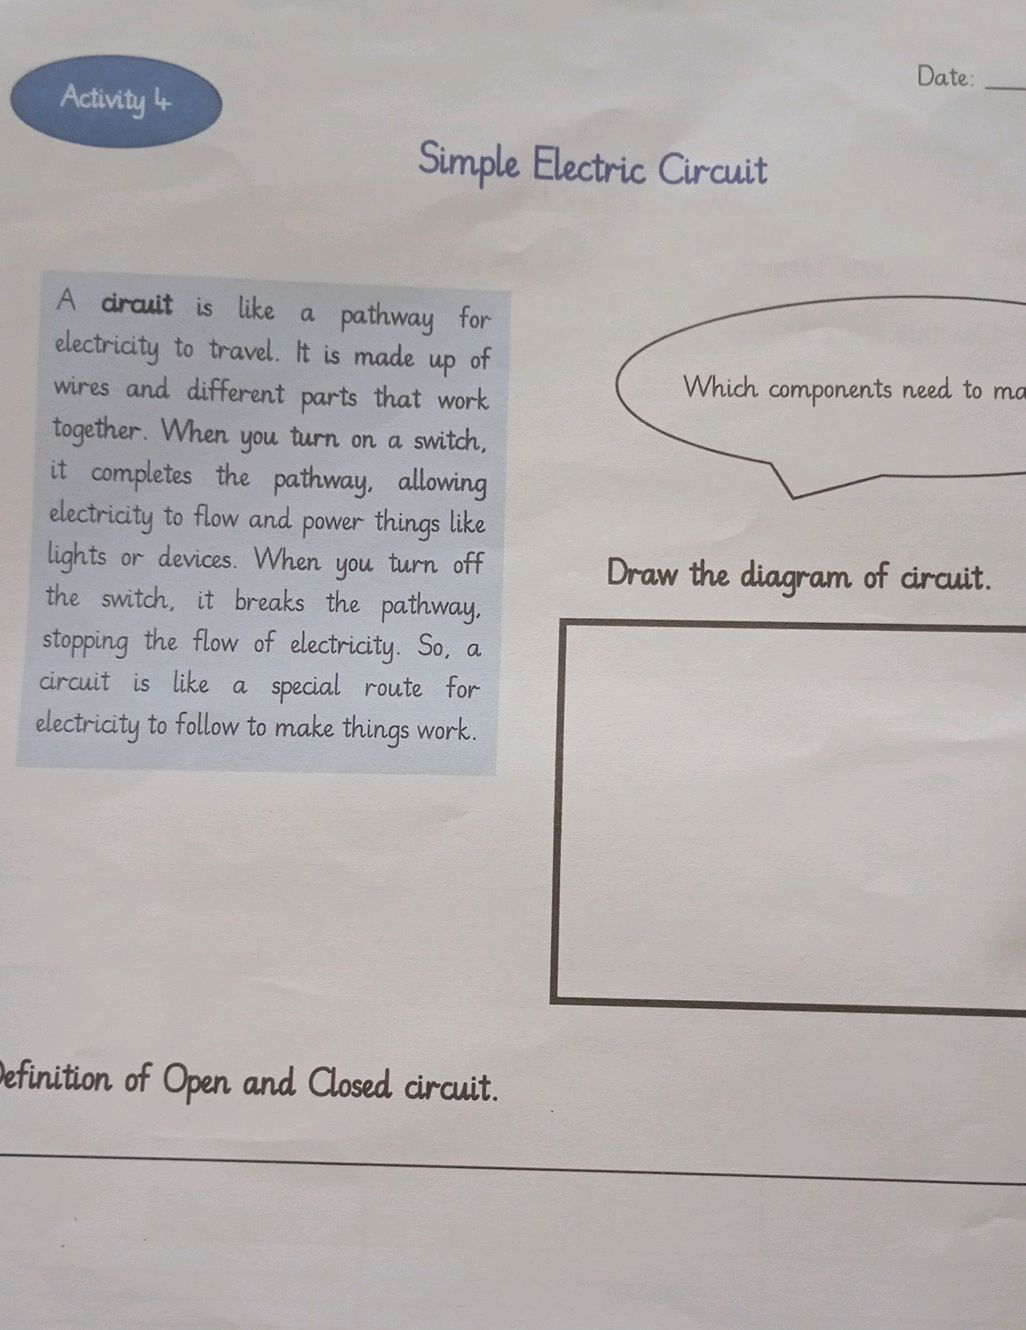 Activity 4
Date:
Simple Electric Circuit
A circuit is like a pathway for
electricity to travel. It is made up of
wires and different parts that work
together. When you turn on a switch,
it completes the pathway, allowing
electricity to flow and power things like
lights or devices. When you turn off
the switch, it breaks the pathway,
stopping the flow of electricity. So, a
circuit is like a special route for
electricity to follow to make things work.
Which components need to ma
Draw the diagram of circuit.
Definition of Open and Closed circuit.